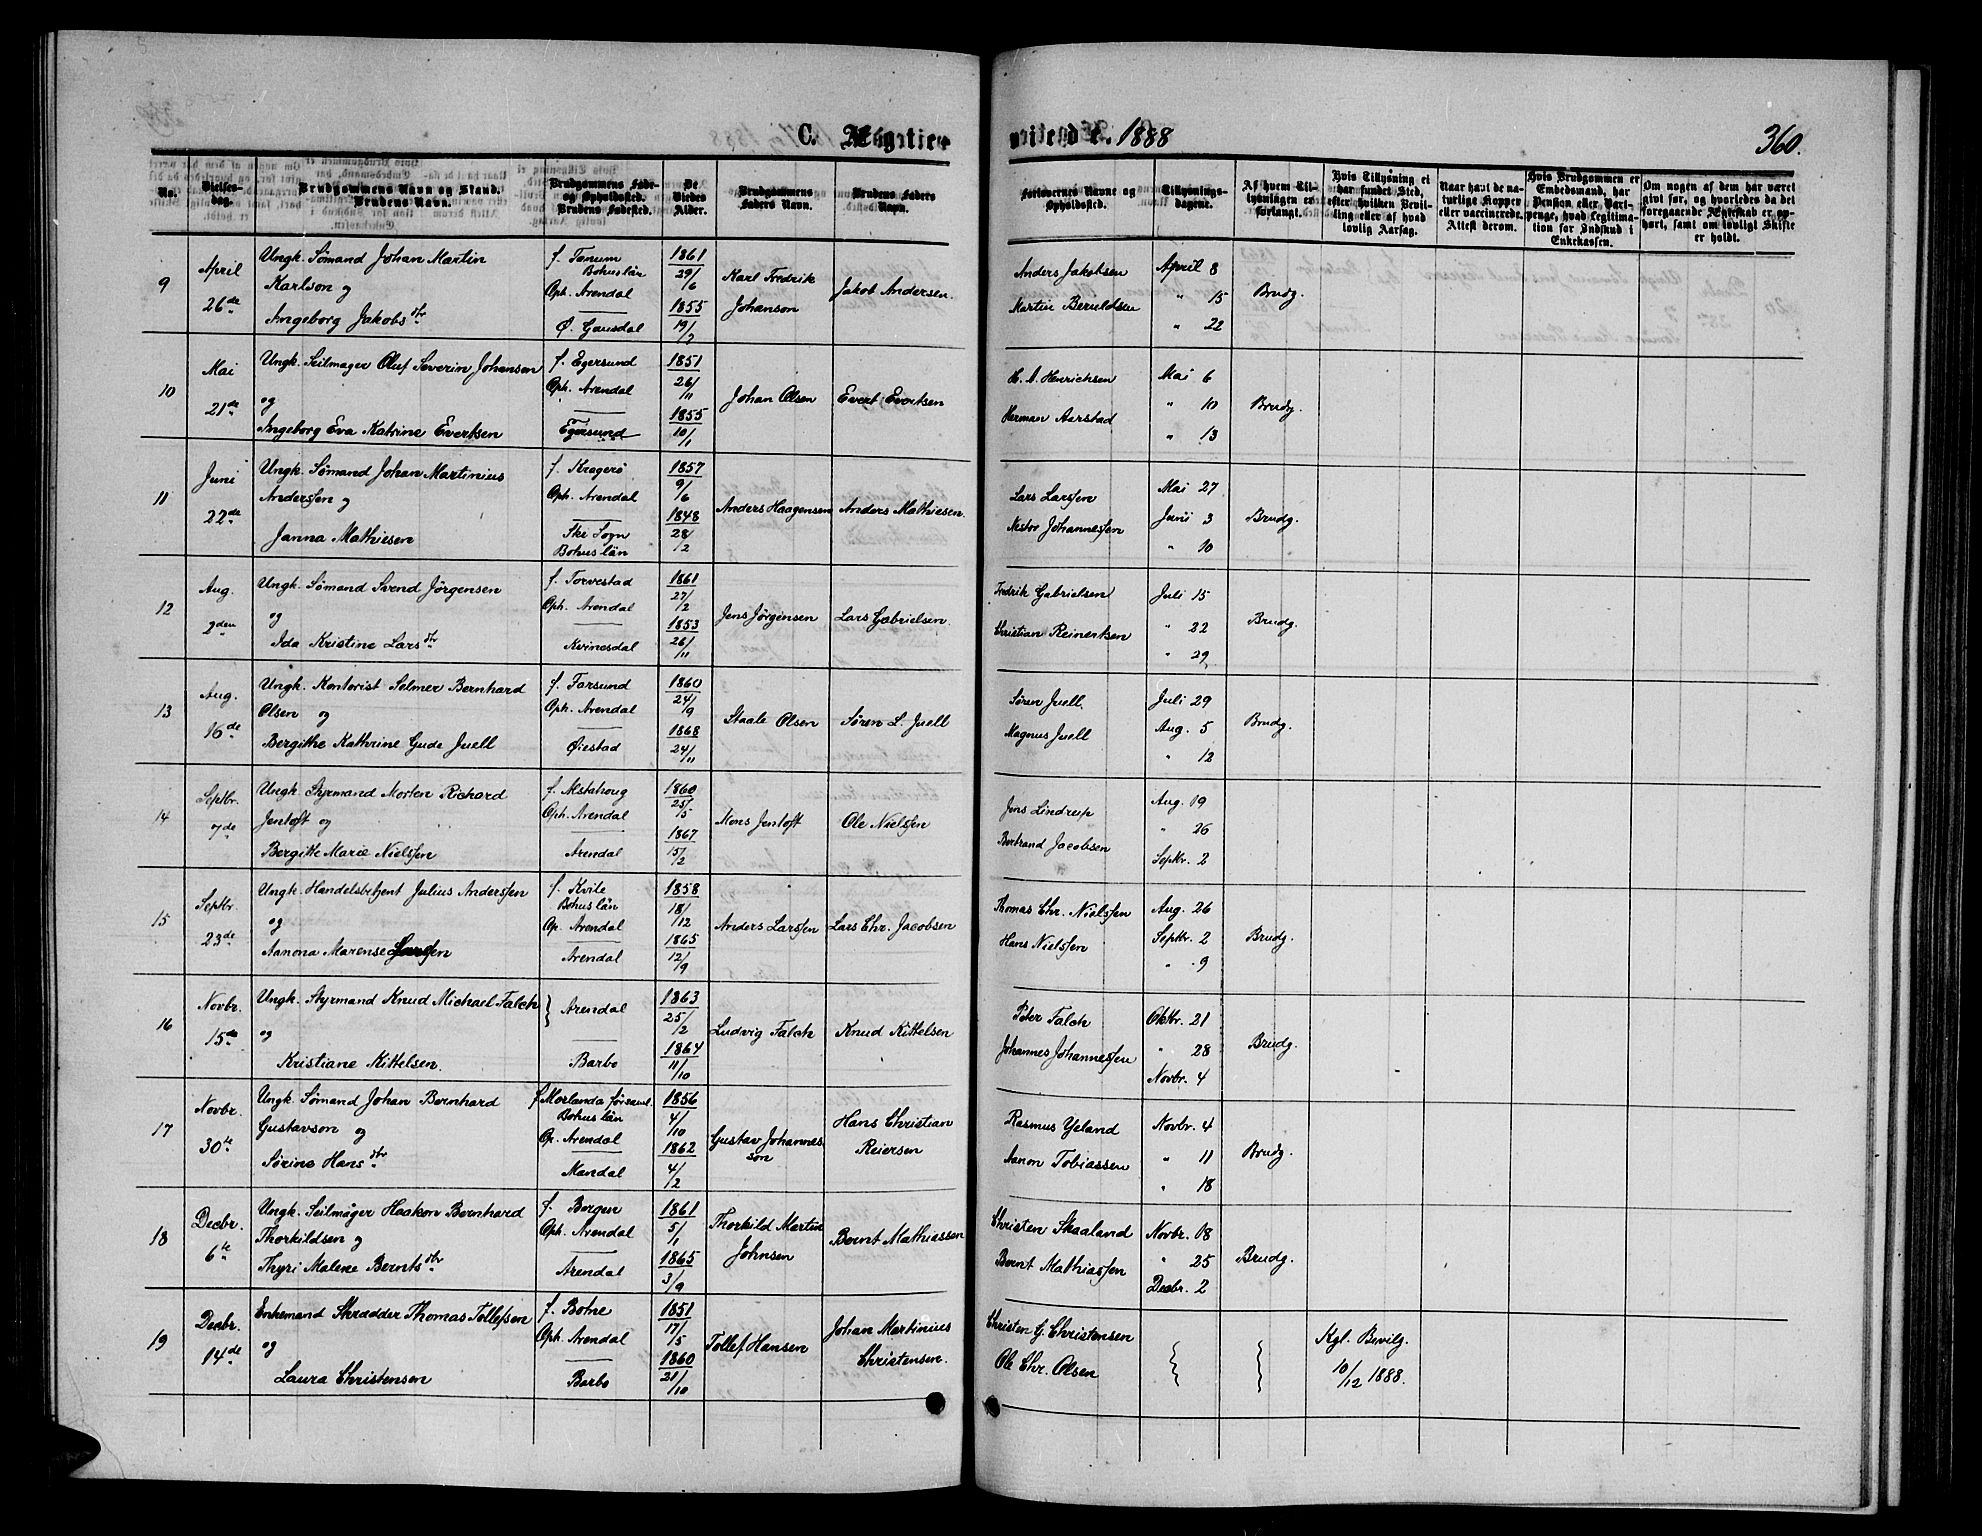 C. Ægtevi
ede i. 1888
360.
No.
Vielses-
dag.
Brudgommens Navn og Stand.
Brudens Navn.
Brudgommens Føde-
og Opholdssted.
Brudens Fødested.
De
Viedes
Alder.
Brudgommens
Faders Navn.
Brudens Faders
Navn.
Forlovernes Navne og
Opholdssted.
Tillysnings-
dagene.
Af hvem Til-
lysningen er
forlangt.
Hvis Tillysning ei
har fundet Sted,
efter hvilken Bevil-
ling eller af hvad
lovlig Aarsag.
Naar havt de na-
turlige Kopper
eller vaccinerede.
Attest derom.
Hvis Brudgommen er
Embedsmand, har
Pension eller Vart-
penge, hvad Legitima-
tion for Indskud i
Enkekassen.
Om nogen af dem har været
givt før, og hvorledes da det
foregaaende Ægteskab er op-
hørt, samt om lovligt Skifte
er holdt.
9
April
26de
Ungk. Sømand Johan Martin
Karlson og
Ingeborg Jakobsdtr
f. Tanum
Bohuslän
Oph. Arendal
Ø. Gausdal
1861
29/6
1855
19/2
Karl Fredrik
Johanson
Jakob Andersen.
Anders Jakobsen
Martin Berntsen
April 8
" 15
" 22
Brudg.
10
Mai
21de
Ungk. Seilmager Oluf Severin Johansen
og
Ingeborg Eva Katrine Evertsen
f. Egersund
Oph. Arendal
Egersund
1851
26/11
1855
10/1
Johan Olsen
Evert Evertsen
H. A. Henrichsen
Herman Aarstad
Mai 6
" 10
" 13
Brudg.
11
Juni
22de
Ungk. Sømand Johan Martinius
Anderssen og
Janna Mathiesen
f. Kragerø
Oph. Arendal
Ske Sogn
Bohuslän
1857
9/6
1848
28/2
Anders Haagensen
Anders Mathiesen.
Lars Larssen
Nestor Johannessen
Mai 27
Juni 3
" 10
Brudg.
12
Aug.
2den
Ungk. Sømand Svend Jørgensen
og
Ida Kristine Larsdtr
f. Torvestad
Oph. Arendal
Kvinesdal
1861
27/2
1853
26/11
Jens Jørgensen
Lars Gabrielsen.
Fredrik Gabrielsen
Christian Reinertsen
Juli 15
" 22
" 29
Brudg.
13
Aug.
16de
Ungk. Kontorist Selmer Bernhard
Olsen og
Bergithe Kathrine Gude Juell
f. Farsund
Oph. Arendal
Øiestad
1860
24/9
1868
24/11
Staale Olsen
Søren L. Juell
Søren Juell
Magnus Juell
Juli 29
Aug. 5
" 12
Brudg.
14
Septbr.
7de
Ungk. Styrmand Morten Richard
Jentoft og
Bergitte Marie Nielssen
f. Alstahoug
Oph. Arendal
Arendal
1860
25/5
1867
15/2
Mons Jentoft
Ole Nielssen
Jens Lindrup
Bertrand Jacobsen
Aug. 19
" 26
Septbr. 2
15
Septbr.
23de
Ungk. Handelsbetjent Julius Anderssen
og
Aanona Marense Larssen
f. Kville
Bohuslän
Op. Arendal
Arendal
1858
18/12
1865
12/9
Anders Larssen
Lars Chr. Jacobsen
Thomas Chr. Nielssen
Hans Nielssen
Aug. 26
Septbr. 2
" 9
Brudg.
16
Novbr.
15de
Ungk. Styrmand Knud Michael Falch
og
Kristiane Kittelsen.
Arendal
Barbo
1863
25/2
1864
11/10
Ludvig Falch
Knud Kittelsen
Peter Falch
Johannes Johannessen
Oktbr. 21
" 28
Novbr. 4
Brudg.
17
Novbr.
30te
Ungk. Sømand Johan Bernhard
Gustavson og
Sørine Hansdtr
f Morlanda Församl.
Bohuslän
Op. Arendal
Mandal
1856
4/10
1862
4/2
Gustav Johannes
son
Hans Christian
Reiersen
Rasmus Yeland
Aanon Tobiassen
Novbr. 4
" 11
" 18
Brudg.
18
Decbr.
6te
Ungk. Seilmager Haakon Bernhard
Thorkildsen og
Thyri Malene Berntsdtr
f. Bergen
Oph. Arendal
Arendal
1861
5/1
1865
3/9
Thorkild Martin
Johnsen
Bernt Mathiassen
Christen Skaaland
Bernt Mathiassen
Novbr. 18
" 25
Decbr. 2
Brudg.
19
Decbr.
14de
Enkemand Skrædder Thomas Tollefsen
og
Laura Christensen
f. Botne
Oph. Arendal
Barbo
1851
17/5
1860
21/10
Tollef Hansen
Johan Martinius
Christensen.
Christen G. Christensen
Ole Chr. Olsen
Kgl. Bevilg.
10/12 1888.